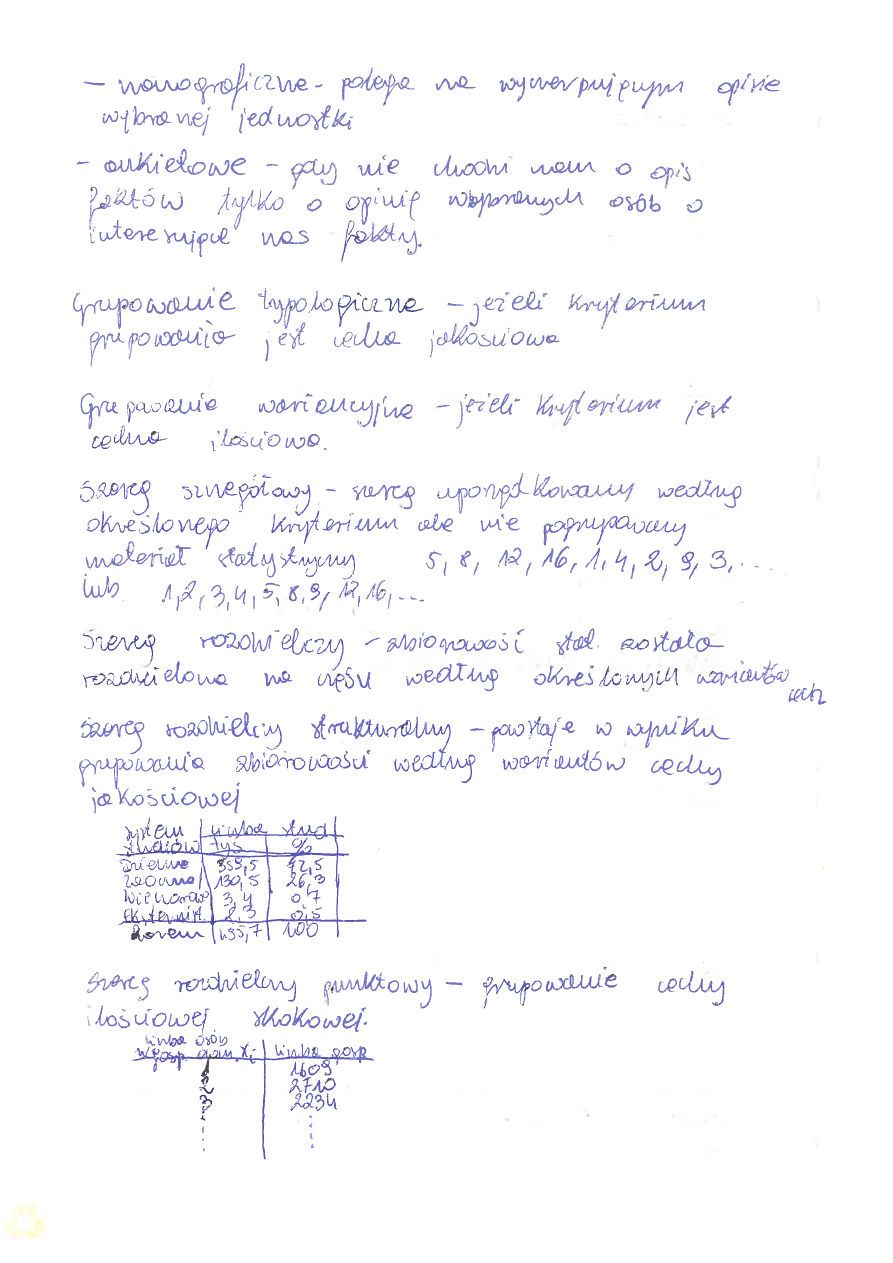 – monograficzne - polega na wyczerpującym opisie
wybranej jednostki
- ankietowe - gdy nie chodzi nam o opis
faktów tylko o opinię wybranych osób o
interesujące nas fakty.
Grupowanie typologiczne – jeżeli kryterium
grupowania jest cecha jakościowa
Grupowanie wariancyjne – jeżeli kryterium jest
cecha ilościowa.
Szereg szczegółowy – szereg uporządkowany według
określonego kryterium ale nie pogrupowany
materiał statystyczny 5, 8, 12, 16, 1, 4, 2, 9, 3, ...
lub 1, 2, 3, 4, 5, 8, 9, 12, 16, ...
Szereg rozdzielczy – zbiorowość stat. została
rozdzielona na części według określonych wariantów
cech
Szereg rozdzielczy strukturalny – powstaje w wyniku
grupowania zbiorowości według wariantów cechy
jakościowej
system liczba stud
studiów tys %
Dzienne 359,5 72,5
Zaoczne 130,5 26,3
Wieczorow 3,4 0,7
Eksternist. 2,3 0,5
Razem 495,7 100
Szereg rozdzielczy punktowy – grupowanie cechy
ilościowej skokowej.
liczba osób
w gosp. dom. xi liczba gosp
1 1609
2 2710
3 2234
... ...